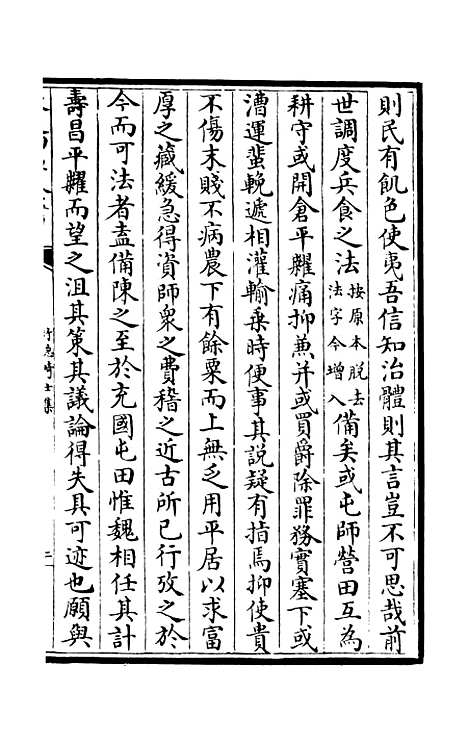 則民有飢色使夷吾信知治體則其言豈不可思哉前
世調度兵食之法按原本脱去法字今增入備矣或屯師營田互為
耕守或開倉平糶痛抑兼并或買爵除罪務實塞下或
漕運蜚輓遞相灌輸乗時便事其説疑有指焉抑使貴
不傷末賤不病農下有餘粟而上無乏用平居以求富
厚之藏緩急得資師衆之費稽之近古所已行攷之於
今而可法者盍備陳之至於充國屯田惟魏相任其計
壽昌平糶而望之沮其策其議論得失具可迹也願與
竹忠惠士集
三